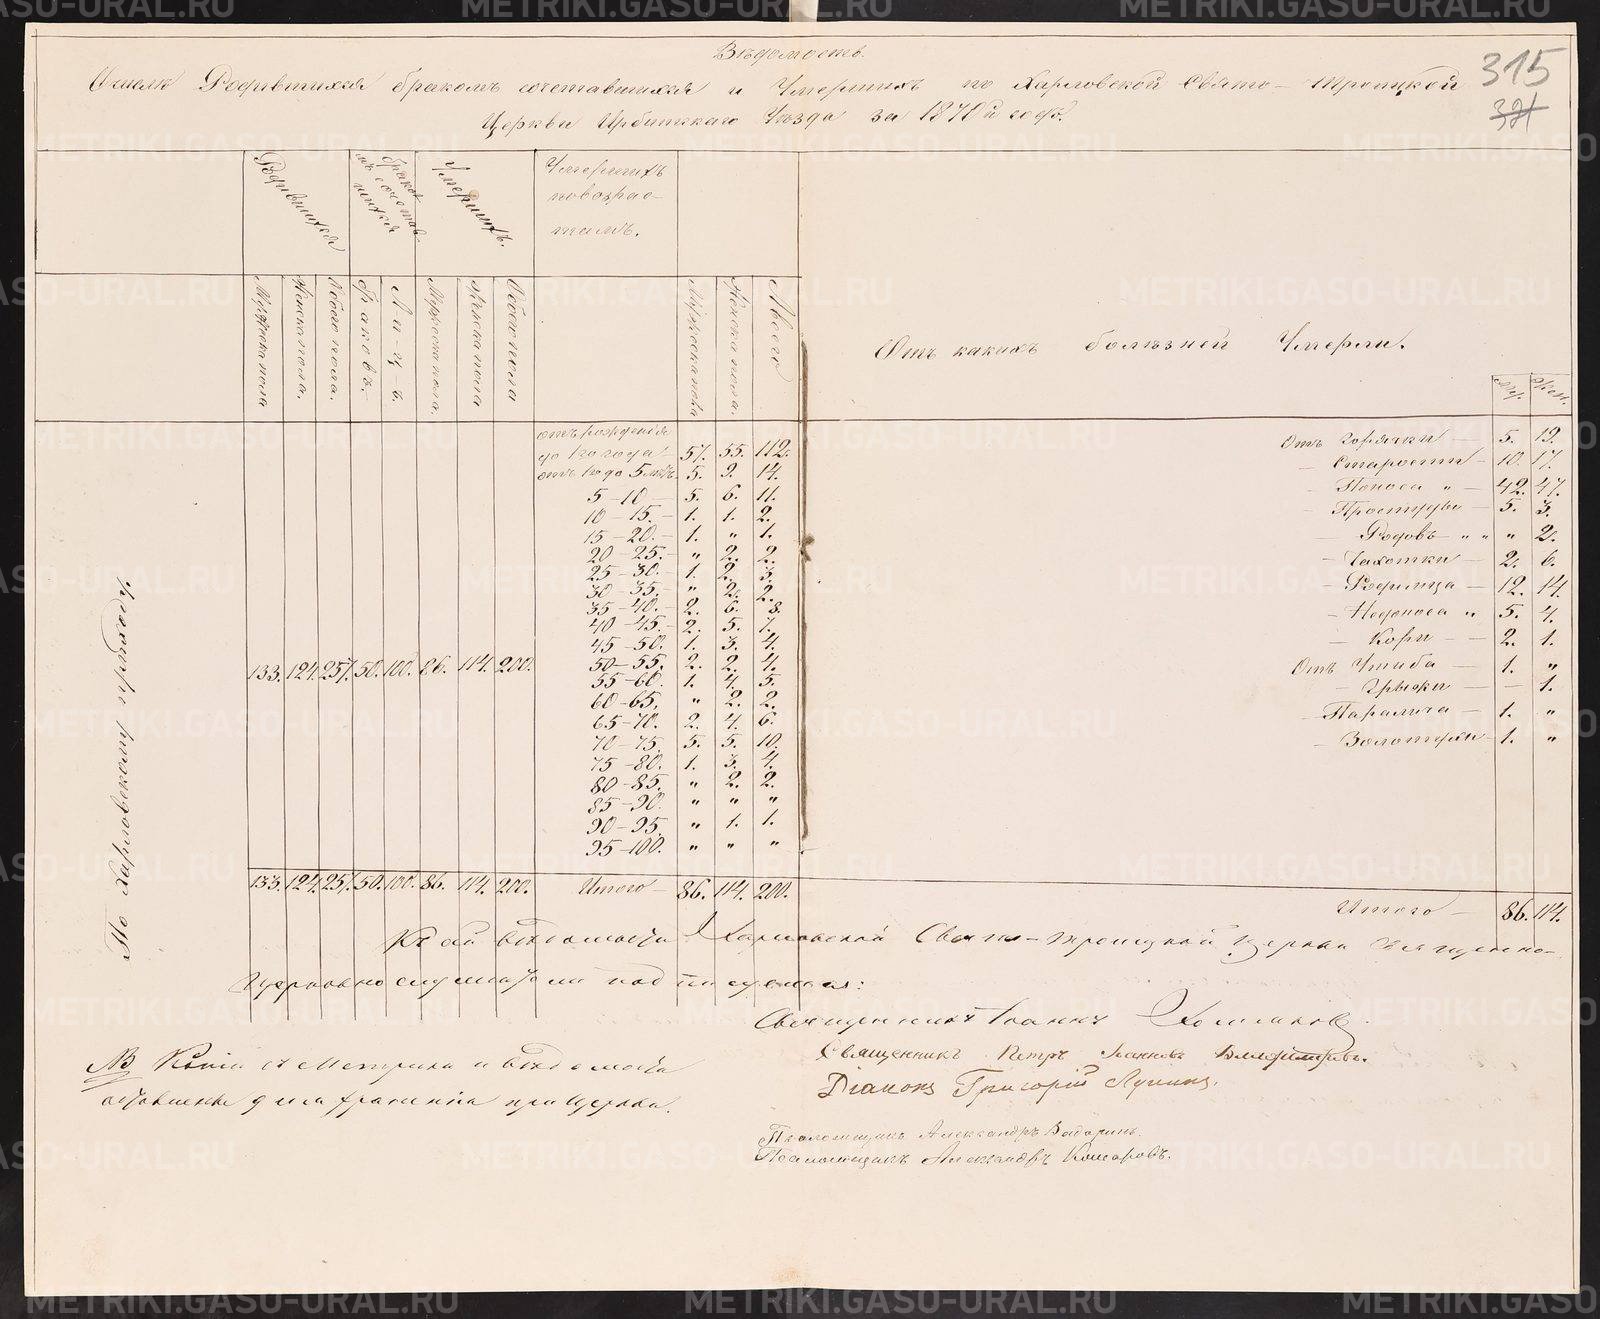 315
321
Вѣдомость.
О числѣ Родившихся бракомъ сочетавшихся и Умершихъ по Харловской Свято-Троицкой
Церкви Ирбитскаго Уѣзда за 187й годъ.
Родившихся
бракомъ сочетавшихся
Умершихъ.
Умершихъ
по возрас-
тамъ.
Мужска пола
Женска пола.
Обоего пола.
Браковъ.
Лицъ.
Мужска пола.
Женска пола
Обоего пола
Мужска пола
Женска пола.
Всего
Отъ какихъ болѣзней Умерли.
Муж.
Жен.
По Харловскому приходу.
133. 124. 257. 50. 100. 86. 114. 200.
отъ рожденія
до 1го года 57. 55. 112.
отъ 1го до 5 лѣтъ. 5. 9. 14.
5-10 5. 6. 11.
10-15. 1. 1. 2.
15-20. 1. " 1.
20-25. " 2. 2.
25-30. 1. 2. 3.
30-35. " 2. 2.
35-40. 2. 6. 8.
40-45. 2. 5. 7.
45-50. 1. 3. 4.
50-55. 2. 2. 4.
55-60. 1. 4. 5.
60-65. " 2. 2.
65-70. 2. 4. 6.
70-75. 5. 5. 10.
75-80. 1. 3. 4.
80-85. " 2. 2.
85-90. " " "
90-95. " 1. 1.
95-100. " " "
Отъ Горячки — 5. 19.
— Старости — 10. 17.
— Поноса " — 42. 47.
— Простуды — 5. 3.
— Родовъ — " " " 2.
— Чахотки — 2. 6.
— Родимца — 12. 14.
— Недоноса " 5. 4.
— Кори — 2. 1.
Отъ Ушиба — 1. "
— Грыжи — — 1.
— Паралича — 1. "
— Золотухи — 1. "
133. 124. 257. 50. 100. 86. 114. 200. Итого — 86. 114. 200.
Итого — 86. 114.
Къ сей вѣдомости Харловской Свято-Троицкой Церкви Священно-
церковнослужители подписуемся:
Священникъ Іоаннъ
Священникъ Петръ Іоанновъ
Діаконъ Григорій Лукинъ.
Псаломщикъ Александръ
Псаломщикъ Александръ Комаровъ.
NB Копіи съ Метрики и вѣдомости
оставлены для храненія при Церкви.
METRIKI.GASO-URAL.RU